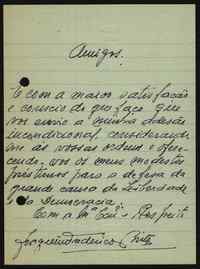 Amigos.
É com a maior satisfação
e consciº do que faço que
vos envio a minha adesão
incondicional, considerando-
me às vossas ordens e ofere-
cendo-vos os meus modestos
préstimos para a defesa da
grande causa da Liberdade
e da Democracia.
Com a Mª Consº e Respeito
Joaquim Frederico Brito